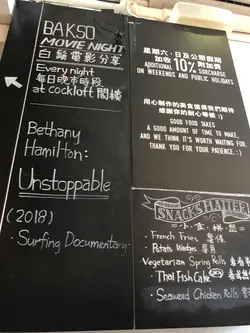 BAKSO
MOVIE NIGHT
白鬚電影分享
Every night
每日晚市時段
at cockloft 閣樓
Bethany
Hamilton:
Unstoppable
(2018)
· Surfing Documentary
星期六、日及公眾假期
加收10%附加費
ADDITIONAL 10% SURCHARGE
ON WEEKENDS AND PUBLIC HOLIDAYS
用心制作的美食值得我們期待
感謝你的耐心等候 :)
GOOD FOOD TAKES
A GOOD AMOUNT OF TIME TO MAKE,
AND WE THINK IT'S WORTH WAITING FOR.
THANK YOU FOR YOUR PATIENCE.
小食拼盤
SNACKS PLATTER
· French Fries 薯條
· Potato Wedges 薯角
Vegetarian Spring Rolls
· Thai Fish Cake
· Seaweed Chicken Rolls